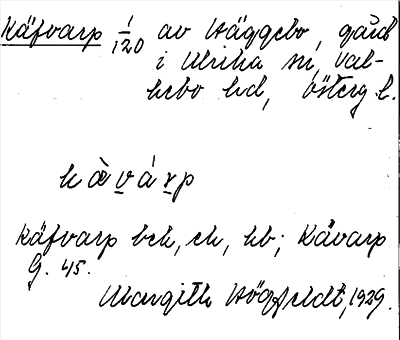 Käfvarp 1/120 av Häggebo, gård
i Ulrika sn, Val-
kebo hd, Österg. l.
kàvárp
Käfvarp bch, ch, hb; Kävarp
G. 45.
Margith Högfeldt, 1929.